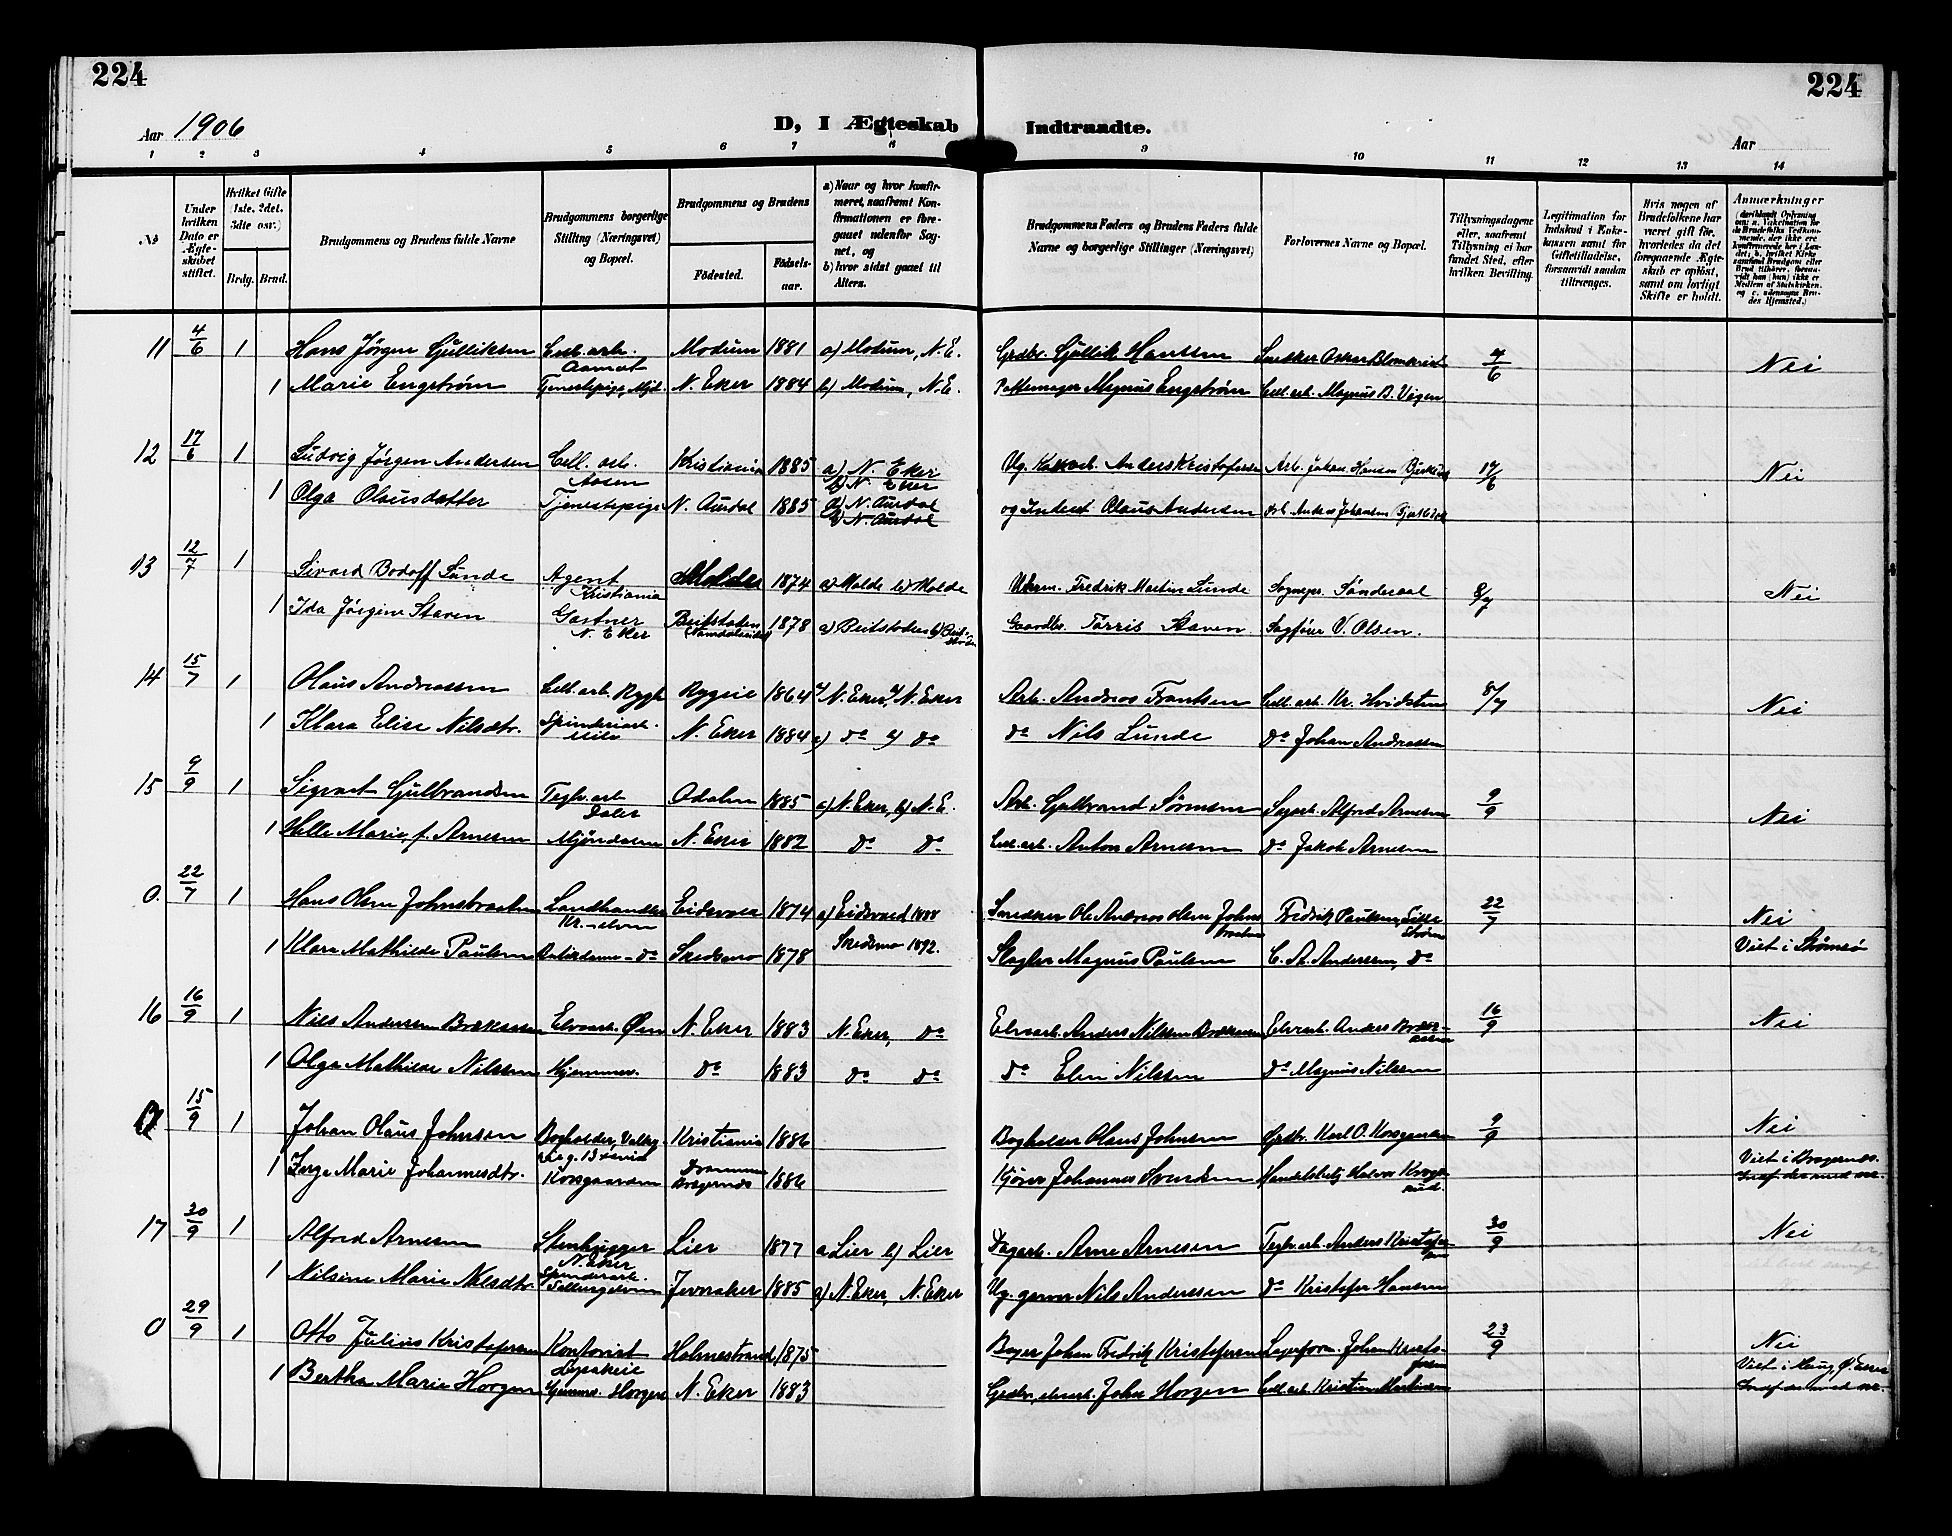 224
224
Aar 1906
D, I Ægteskab Indtraadte.
Aar
1 2 3 4 5 6 7 8 9 10 11 12 13 14
No
Under hvilken Dato er Ægteskabet stiftet.
Hvilket Gifte (1ste, 2det, 3dte osv.)
Brdg. Brud.
Brudgommens og Brudens fulde Navne
Brudgommens borgerlige Stilling (Næringsvei) og Bopæl.
Brudgommens og Brudens
Fødested.
Fødselsaar.
a) Naar og hvor konfirmeret, saafremt Konfirmationen er foregaaet udenfor Sognet, og
b) hvor sidst gaaet til Alters.
Brudgommens Faders og Brudens Faders fulde Navne og borgerlige Stillinger (Næringsvei)
Forlovernes Navne og Bopæl.
Tillysningsdagene eller, saafremt Tillysning ei har fundet Sted, efter hvilken Bevilling.
Legitimation for Indskud i Enkekassen samt for Giftetilladelse, forsaavidt saadan tiltrænges.
Hvis nogen af Brudefolkene har været gift før, hvorledes da det foregaaende Ægteskab er opløst, samt om lovligt Skifte er holdt.
Anmærkninger
11 4/6 1 Hans Jørgen Gulliksen Cell. arb. Aamot Modum 1881 a) Modum, N. E. Grdbr. Gullik Hanssen Snedker Oskar Blomkvist 4/6 Nei
1 Marie Engstrøm Tjenestepige, Mjd. N. Eker 1884 b) Modum, N. E. Magnus Engstrøm Cell. arb. Magnus B. Vegen
12 17/6 1 Ludvig Jørgen Andersen Cell. arb. Aasen Kristiania 1885 a) N. Eker b) N. Eker Anders Kristofersen Arb. Johan Hansen 17/6 Nei
1 Olga Olausdatter Tjenestepige N. Aurdal 1885 a) N. Aurdal b) N. Aurdal og Inderst Olaus Andersen Arb. Anders Johansen
13 12/7 1 Sivard Bodoff Sunde Agent Kristiania Molde 1874 a) Molde b) Molde Uhrm. Fredrik Martin Sunde Sognepr. Sønderaal 8/7 Nei
1 Ida Jørgine Staven Gartner N. Eker Beitstaden (Namdaleidet) 1878 a) Beitstaden b) Beitstaden Gaardbr. Tørris Staven Sagfører V. Olsen.
14 15/7 1 Olaus Andreassen Cell. arb. Rygh Rygeie 1864 a) N. Eker b) N. Eker Arb. Andreas Frantsen Cell. arb. Kr. Hvidsten 8/7 Nei
1 Klara Elise Nilsdtr. Spinderiarb. N. Eker 1884 a) do b) do do Nils Lunde do Johan Andreassen
15 9/9 1 Sigvart Gulbrandsen Teglv. arb. Daler Odalen 1885 a) N. Eker, b) N. E. Arb. Gulbrand Sørensen Sagarb. Alfred Arnesen 9/9 Nei
1 Helle Marie f. Arnesen Mjøndalen N. Eker 1882 do do Cell. arb. Anton Arnesen do Jakob Arnesen
0. 22/7 1 Hans Olsen Johnsbraaten Landhandler Kr. Eidsvold 1874 a) Eidsvold 1888 Snedker Ole Andreas Olsen Johnsbraaten Fredrik Paulsen, Lillestrøm 22/7 Nei
1 Klara Mathilde Paulsen do Skedsmo 1878 Skedsmo 1892. Slagter Magnus Paulsen C. A. Andersen, do Viet i Strømsø
16 16/9 1 Nils Andersen Brækaasen Elvearb. Øen N. Eker 1883 N. Eker, do Elvearb. Anders Nilssen Brækaasen Elvearb. Anders 16/9 Nei
1 Olga Mathilde Nilssen Hjemmev. do 1883 do do do Elin Nilssen do Magnus Nilssen
0 15/9 1 Johan Olaus Johnsen Bogholder, Kristiania 1886 Bogholder Olaus Johnsen Grdbr. Karl O. Korsgaarden 9/9 Nei
1 Inga Marie Johannesdtr. Korsgaarden Drammen Bragernæs 1886 Kjører Johannes Svendsen Viet i Bragernæs.
17 30/9 1 Alfred Arnesen Stenhugger N. Eker Lier 1877 a Lier b) Lier Dagarb. Arne Arnesen Teglv. arb. Anders Kristofersen 30/9 Nei
1 Nilsine Marie Nilsdtr. Spinderarb. Jevnaker 1885 a) N. Eker, N. Eker Ug. garver Nils Anderssen do Kristofer Hansen
0 29/9 1 Otto Julius Kristofersen Kontorist Holmestrand 1875 Bager Johan Fredrik Kristofersen Lagerform. Johan Kristofersen 23/9 Nei
1 Bertha Marie Horgen Hjemmev. Horgen N. Eker 1883 Grdbr., elvearb. John Horgen Cell. arb. Kristian Martinsen Viet i Haug, Ø. Eker